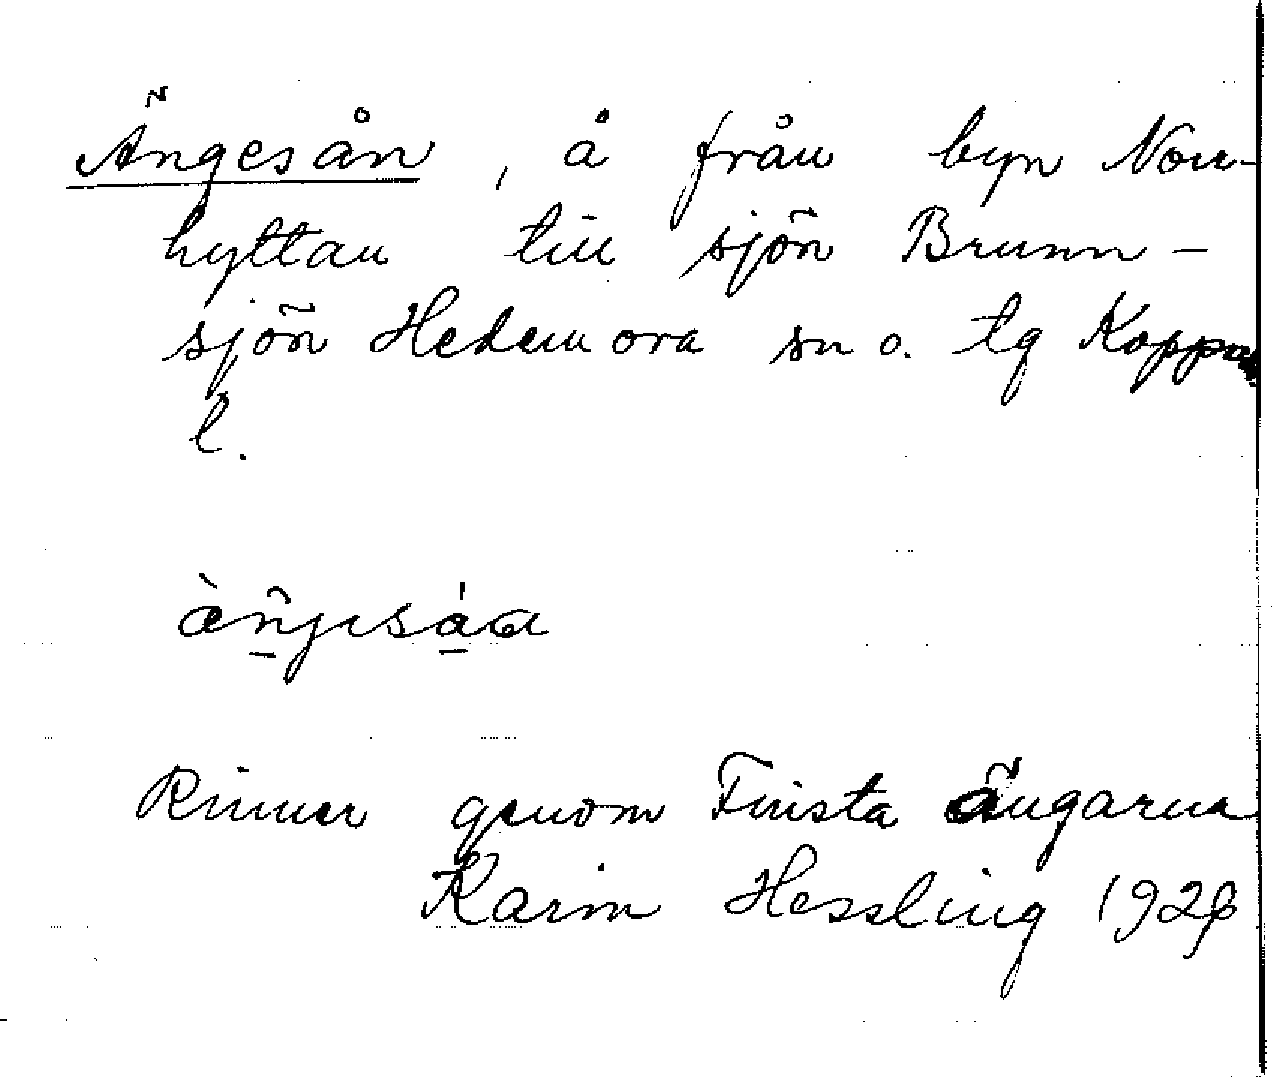 Ängesån, å från byn Norr-
hyttan till sjön Brunn-
sjön Hedemora sn o. tg Koppa
l.
Rinner genom Finsta ängarna
Karin Hessling